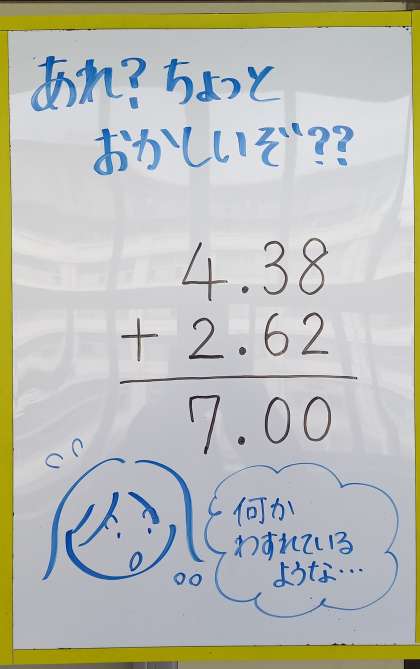 あれ？ちょっと
おかしいぞ??
4.38
+ 2.62
7.00
何か
わすれている
ような…